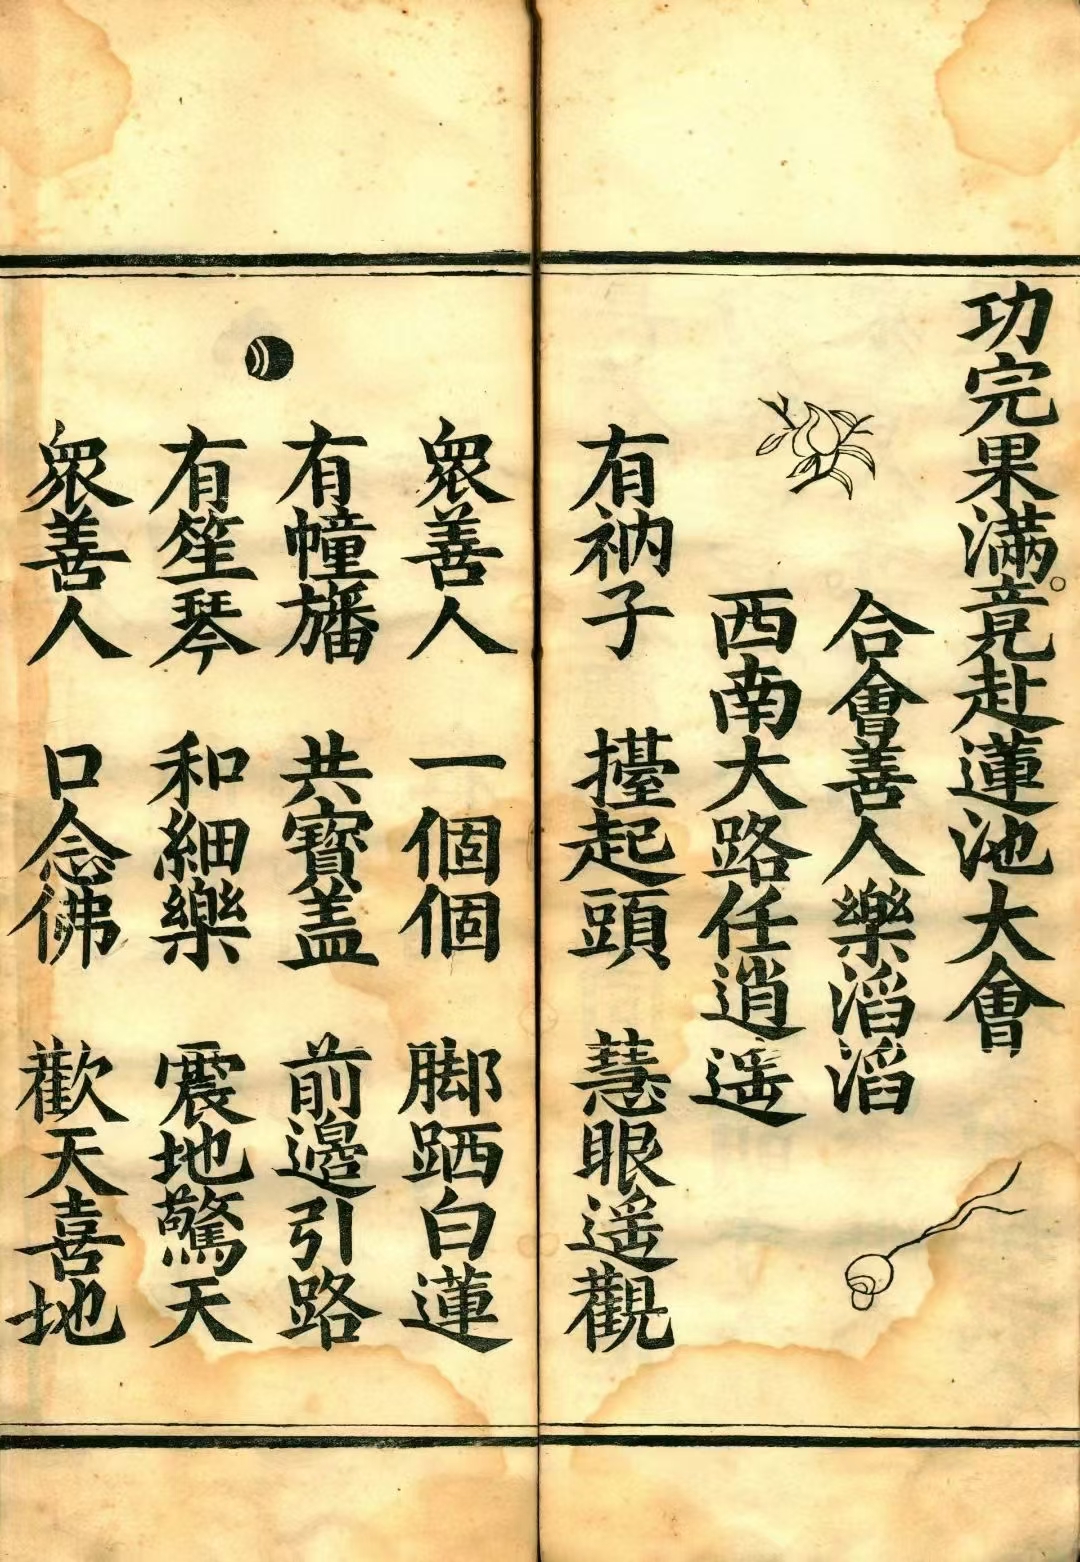 功完果滿。竟赴蓮池大會
合會善人樂滔滔
西南大路任逍遥
有衲子 擡起頭 慧眼遥觀
衆善人 一個個 脚跴白蓮
有幢旛 共寳盖 前邊引路
有笙琴 和細樂 震地驚天
衆善人 口念佛 歡天喜地